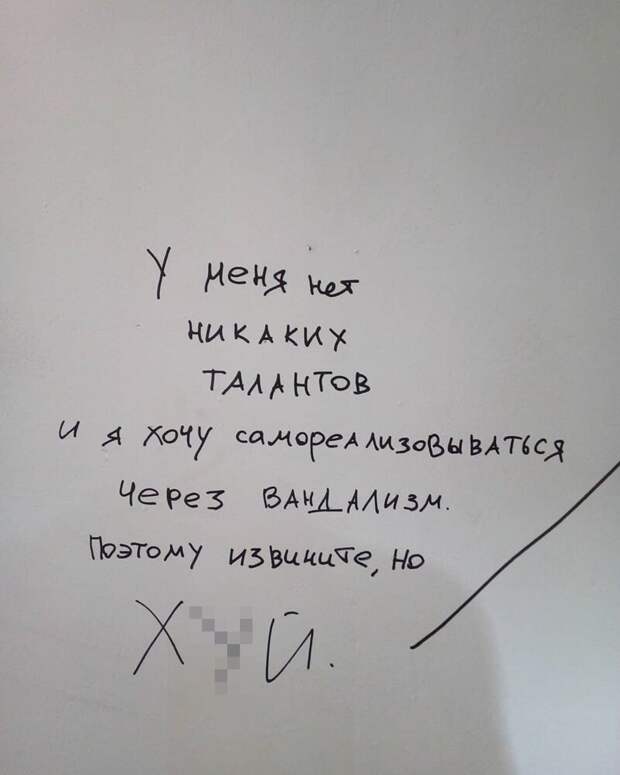 У меня нет
никаких
талантов
и я хочу самореализовываться
через вандализм.
Поэтому извините, но
Хуй.